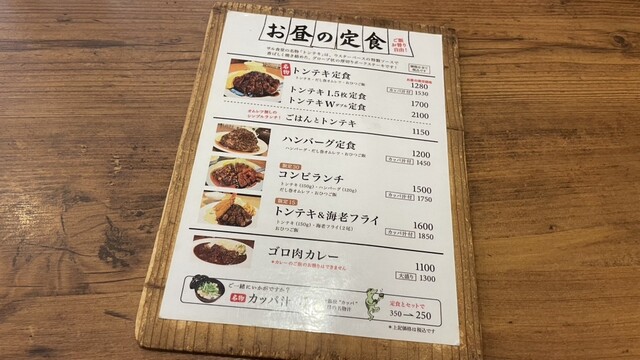 お昼の定食
ご飯
お替り
自由!
トンテキ定食
1280
カッパ汁付 1530
トンテキ1.5枚定食 1700
トンテキWダブル定食 2100
ごはんとトンテキ 1150
ハンバーグ定食 1200
ハンバーグ・だし巻きオムレツ・おひつご飯
カッパ汁付 1450
限定10
コンビランチ 1500
トンテキ(150g)・ハンバーグ(120g)
だし巻きオムレツ・おひつご飯
カッパ汁付 1750
限定15
トンテキ&海老フライ 1600
トンテキ(150g)・海老フライ(2尾)
おひつご飯
カッパ汁付 1850
ゴロ肉カレー 1100
*カレーのご飯のお替りはできません
大盛り 1300
ご一緒にいかがですか?
名物 カッパ汁
定食とセットで
350 250
*上記価格は税込です